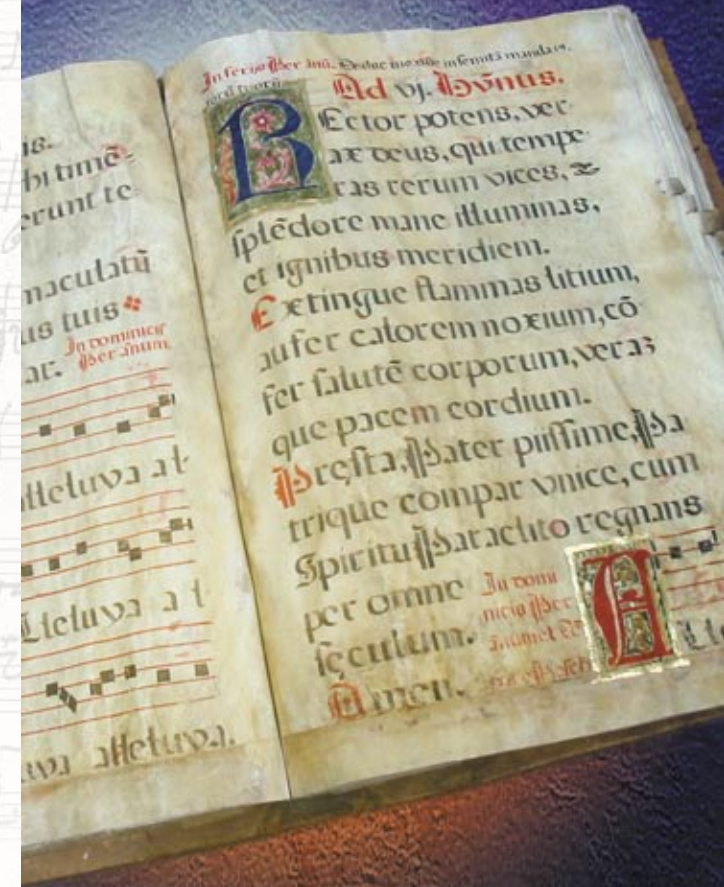 is.
bi timē-
erunt te
maculatū
us tuis
ar. In dominicis
Per annum.
Alleluya al-
Alleluya al
uya alleluya.
In feriis Per annū. Deduc me dñe in semitā mandato.
toru tuoru.
Ad vj. Hỹnus.
REctor potens, ver
ax deus, qui tempe
ras rerum vices,
splēdore mane illuminas,
et ignibus meridiem.
Extingue flammas litium,
aufer calorem noxium, cō
fer salutē corporum, veraꝫ
que pacem cordium.
Pręsta, Pater piissime, Pa
trique compar vnice, cum
Spiritu Paraclito regnans
per omne
sęculum.
Amen.
In domi
nicis Per
A
Lle